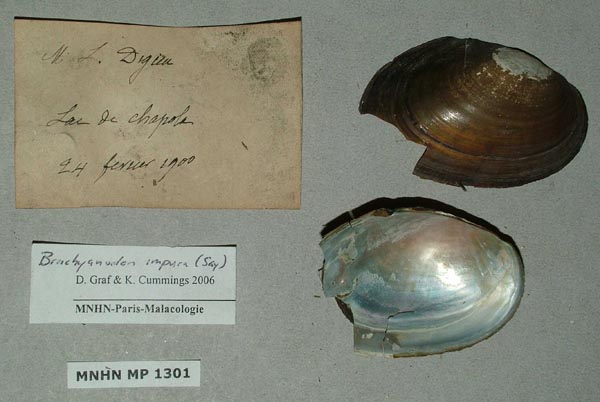 M. L. Diguet
Lac de chapala
24 fevrier 1900
Brachyanodon impura (Say)
D. Graf & K. Cummings 2006
MNHN-Paris-Malacologie
MNHN MP 1301